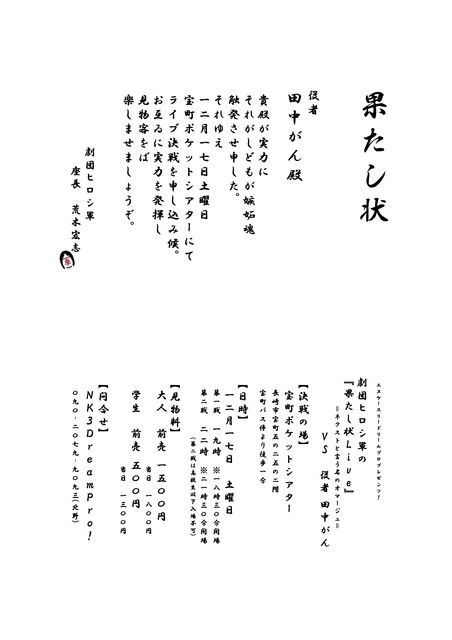 果たし状
役者
田中がん殿
貴殿が実力に
それがしどもが嫉妬魂
触発させ申した。
それゆえ
一二月一七日土曜日
宝町ポケットシアターにて
ライブ決戦を申し込み候。
お互ゐに実力を発揮し
見物客をば
楽しませましょうぞ。
劇団ヒロシ軍
座長 荒木宏志
エヌケースリードリームプロプレゼンツ!
劇団ヒロシ軍の
『果たし状Live』
=ネクストと言う名のオマージュ=
VS 役者 田中がん
【決戦の場】
宝町ポケットシアター
長崎市宝町五の二五の二階
宝町バス停より徒歩一分
【日時】
一二月一七日 土曜日
第一戦 一九時 ※一八時三〇分開場
第二戦 二二時 ※二一時三〇分開場
(第二戦は高校生以下入場不可)
【見物料】
大人 前売 一五〇〇円
当日 一八〇〇円
学生 前売 五〇〇円
当日 一三〇〇円
【問合せ】
NK3DreamPro!
〇九〇-二〇七九-九〇九三(北野)